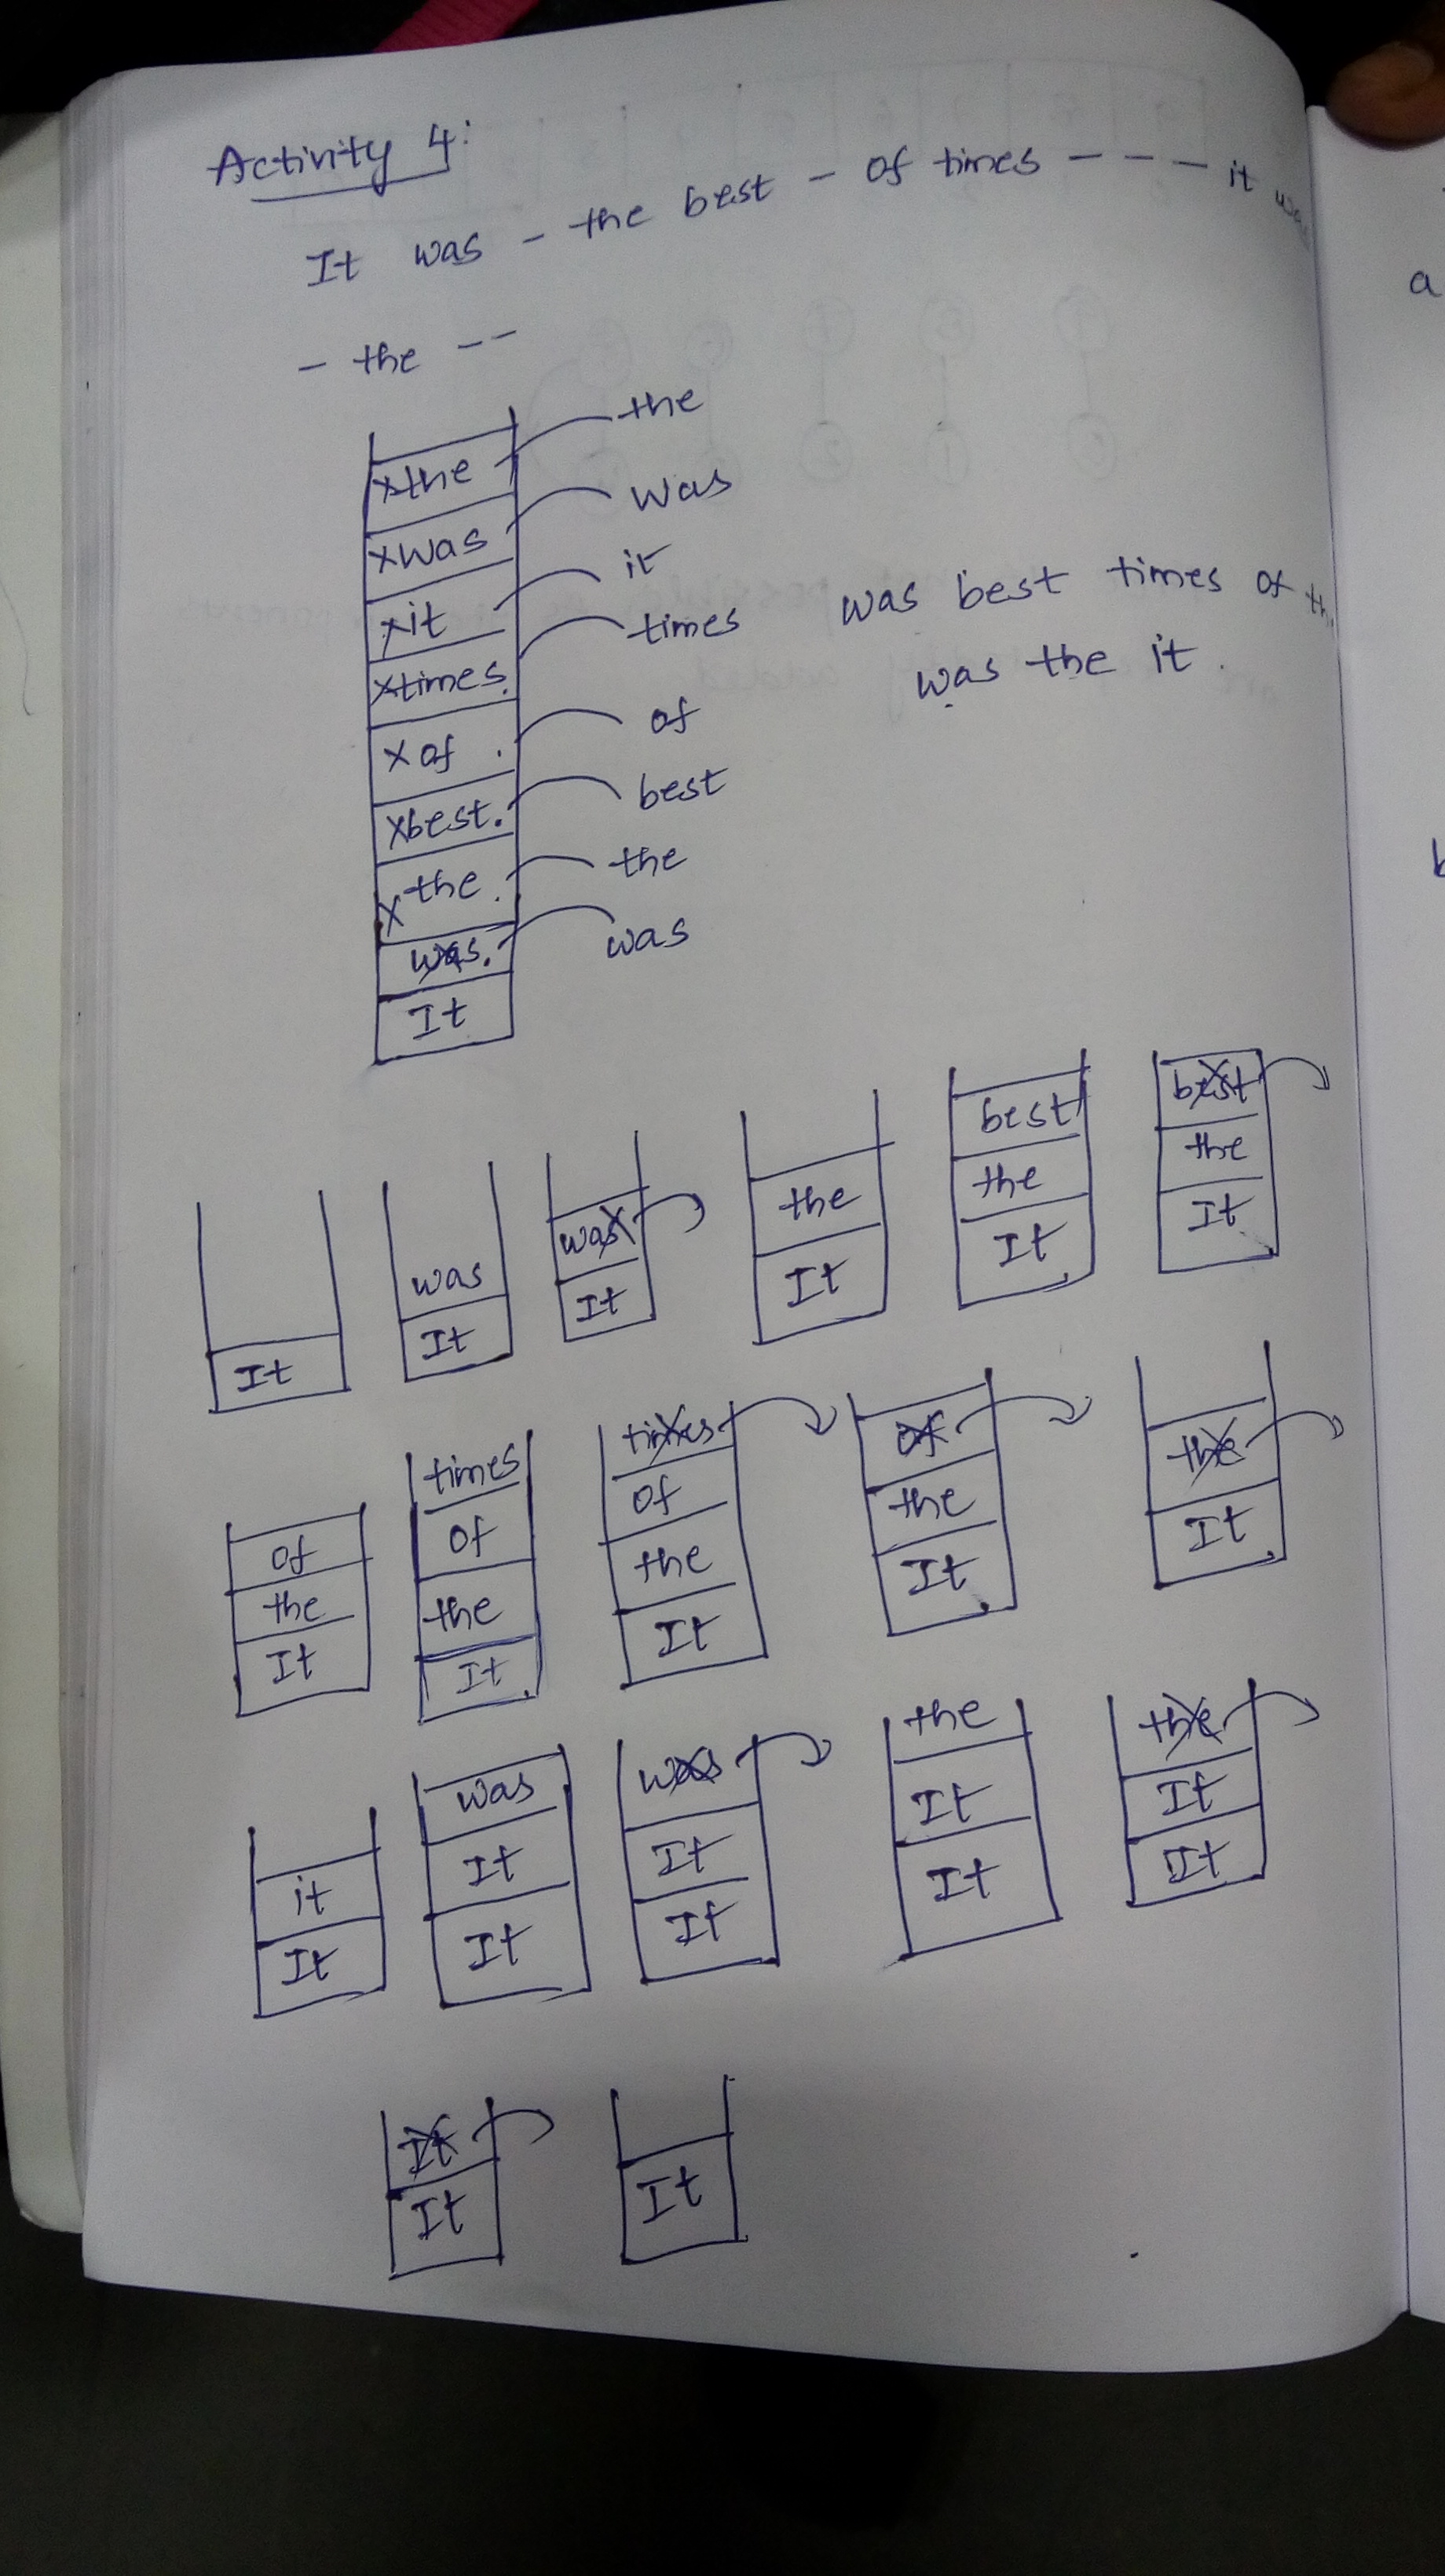 Activity 4:
It was - the best - of times - - - it was
- the - -
xthe the
xwas was
xit it
xtimes. times
x of . of
xbest. best
x the. the
was. was
It
was best times of
was the it.
It
was
It
was
It
the
It
best
the
It
best
the
It
of
the
It
times
of
the
It
times
of
the
It
of
the
It
the
It
it
It
was
It
It
was
It
It
the
It
It
the
It
It
It
It
It
a